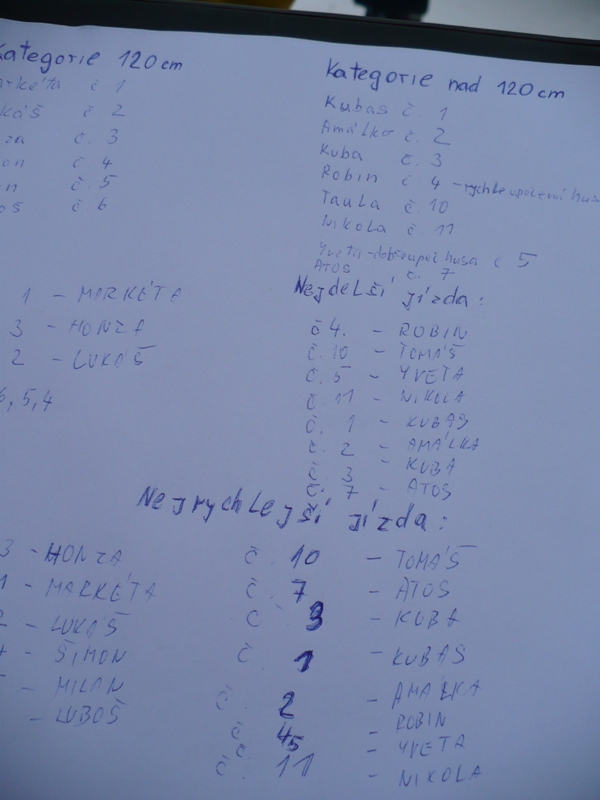 Kategorie 120cm
Markéta č 1
Lukáš č 2
Honza č. 3
Šimon č 4
Milan č. 5
Luboš č 6
Kategorie nad 120cm
Kubas č. 1
Amálka č. 2
Kuba č. 3
Robin č 4 - rychle upečení husa
č. 10
Nikola č. 11
Yveta - dobře upeč. husa č 5
ATOS č. 7
1 - MARKÉTA
3 - HONZA
2 - LUKÁŠ
6, 5, 4
Nejdelší jízda:
č 4. - ROBIN
č. 10 - TOMÁŠ
č. 5 - YVETA
č. 11 - NIKOLA
č. 1 - KUBAS
č. 2 - AMÁLKA
č 3 - KUBA
č. 7 - ATOS
Nejrychlejší jízda:
3 - HONZA
1 - MARKÉTA
2 - LUKÁŠ
4 - ŠIMON
5 - MILAN
- LUBOŠ
č. 10 - TOMÁŠ
č. 7 - ATOS
č 3 - KUBA
č. 1 - KUBAS
č. 2 - AMÁLKA
č. 4 - ROBIN
č 5 - YVETA
č. 11 - NIKOLA